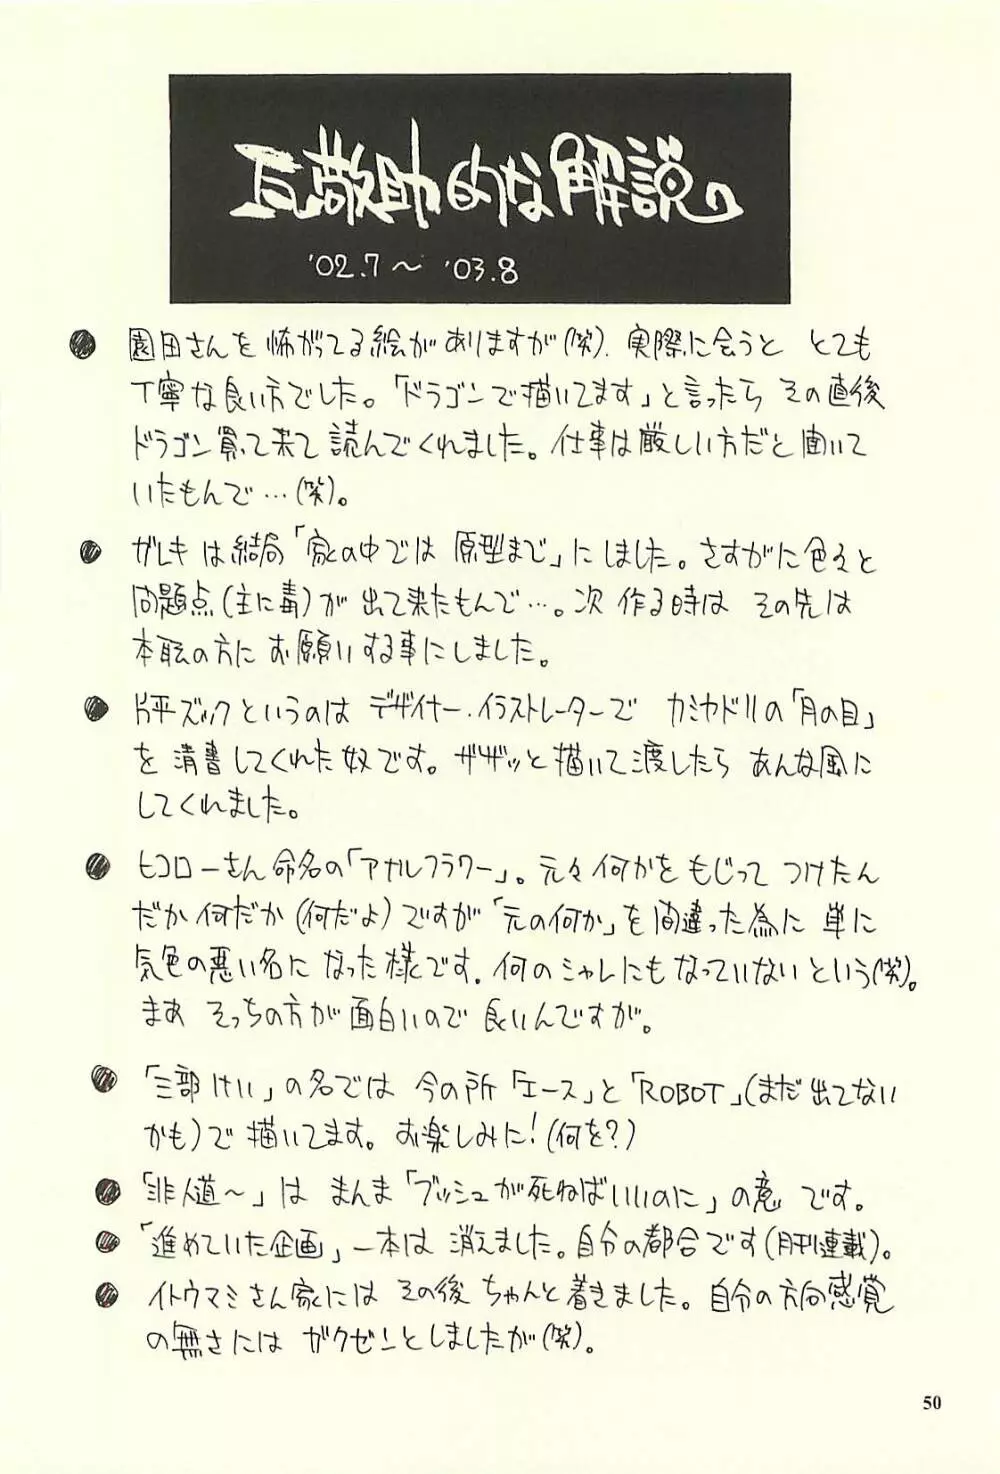 瓦敬助的な解説。
'02.7〜'03.8
● 園田さんを怖がってる絵がありますが(笑)、実際に会うと とても
丁寧な良い方でした。「ドラゴンで描いてます」と言ったら その直後
ドラゴン買って来て読んでくれました。仕事は厳しい方だと聞いて
いたもんで…(笑)。
● ガレキは結局「家の中では 原型まで」にしました。さすがに色々と
問題点(主に毒)が出て来たもんで…。次 作る時は その先は
本職の方に お願いする事にしました。
● 片平ズックというのは デザイナー・イラストレーターで カミヤドリの「月の目」
を 清書してくれた奴です。ザザッと描いて渡したら あんな風に
してくれました。
● ヒコローさん命名の「アナルフラワー」。元々何かを もじって つけたん
だか何だか(何だよ)ですが「元の何か」を間違った為に 単に
気色の悪い名に なった様です。何のシャレにもなっていないという(笑)。
まあ そっちの方が面白いので 良いんですが。
● 「三部けい」の名では 今の所「エース」と「ROBOT」(まだ出てない
かも)で描いてます。お楽しみに!(何を?)
● 「非人道〜」は まんま「ブッシュが死ねばいいのに」の意 です。
● 「進めていた企画」一本は 消えました。自分の都合です(月刊連載)。
● イトウマミさん家には その後 ちゃんと着きました。自分の方向感覚
の無さには ガクゼンとしましたが(笑)。
50